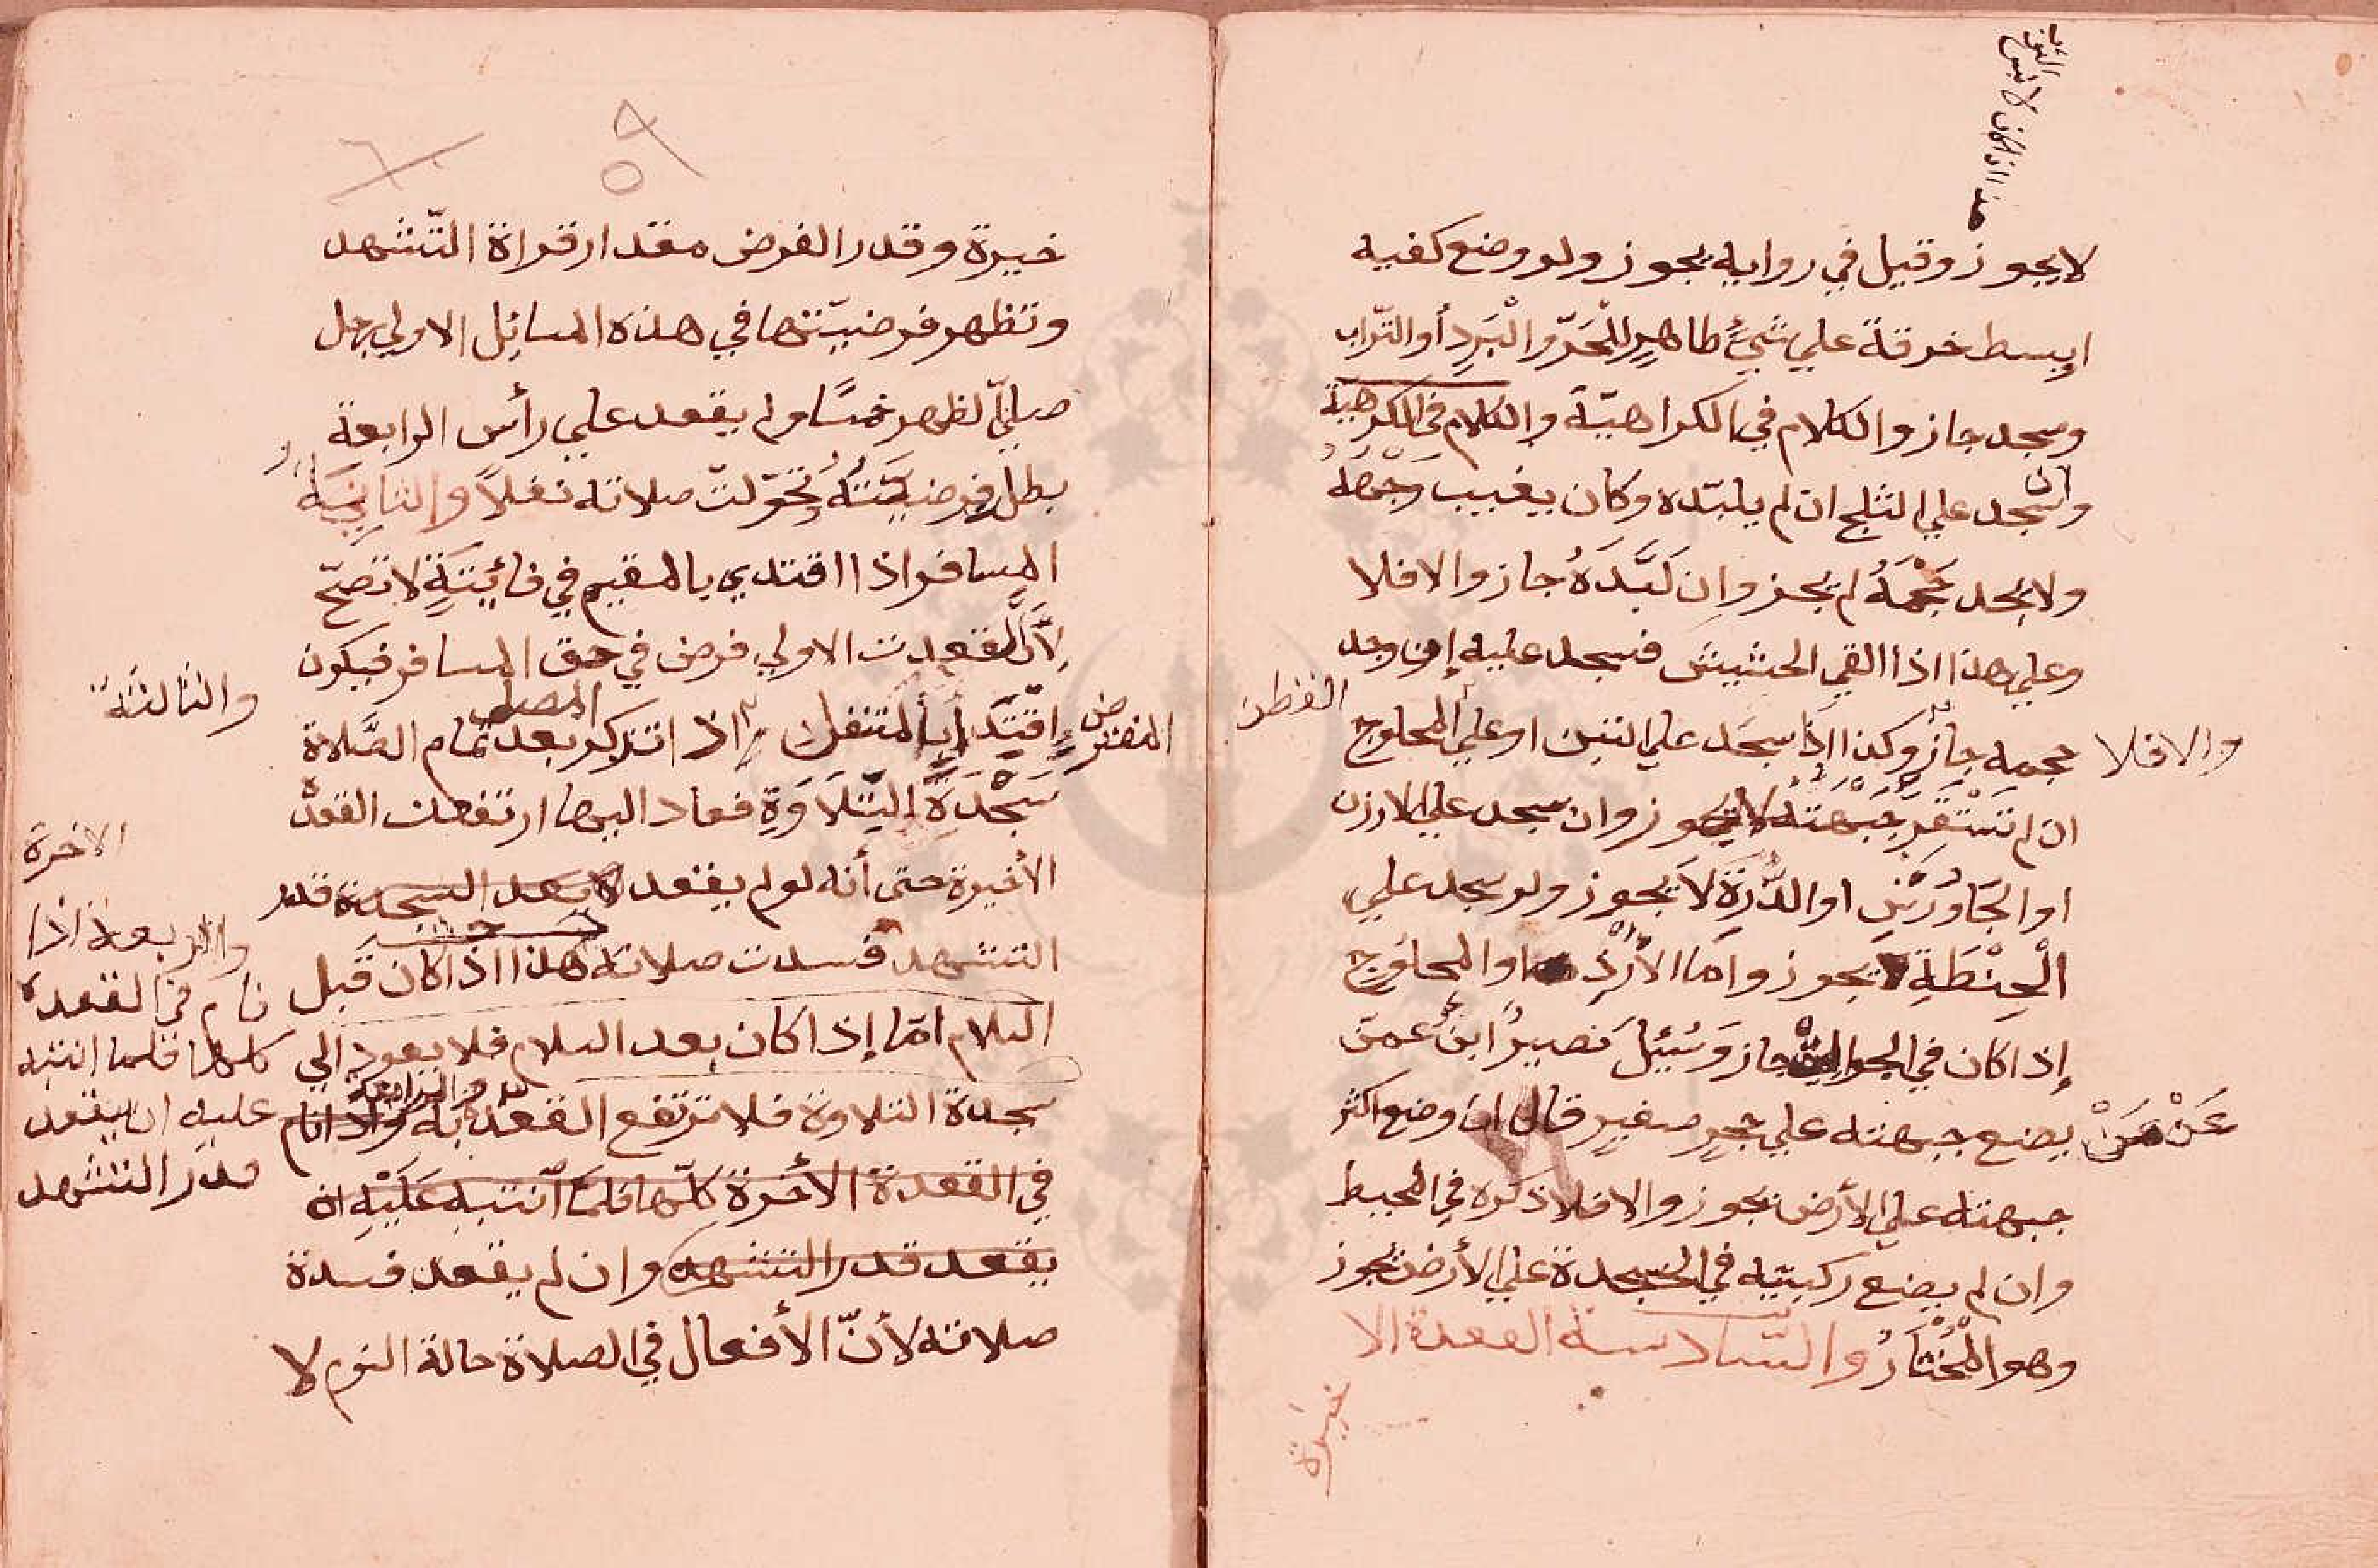 هذا اذا كان لابس الثوب
لا يجوز وقيل في رواية يجوز ولو وضع كفيه
او بسط خرقة علي شيءٍ طاهرٍ للْحَرّ والْبَردِ أو التّراب
وسجد جاز والكلام في الكراهيّة والكلام في الكرهيّة
وان سجد علي الثلج ان لم يلبّده وكان يغيب وَجْهُهُ
ولا يجد حَجْمَهُ لم يجز وان لَبَّدَهُ جاز والا فلا
وعلي هذا اذا القي الحشيش فسجد عليه إن وجد
والا فلا
حجمه جاز وكذا اذا سجَد علي التبن او علي المحلوج
القطن
ان لم تَسْتَقِرَّ جَبْهَتُهُ لا يجوز وان سجد علي الارزن
او الجَاوَرْسِ او الذُّرَةِ لاَ يجوز ولو سجد علي
الْحِنْطَةِ يجوز واما الأَرُزّ او المحلوج
إذا كان في الجوالق جاز وَسُئِلَ نَصِيرُ ابنُ عمن
عَنْ مَنْ يضع جبهته علي حجرٍ صغيرٍ قال ان وضع اكثر
جبهته علي الأرض يجوز والا فلا ذكره في المحيط
وان لم يضع ركبتيه في السجدة علي الأرض يجوز
وهو الْمُخْتَارُ والسّادسة القعدة الا
خيرة
٥٩
٦٠
خيرة وقدر الفرض مقدار قراة التّشهد
وتظهر فرضيّتها في هذه المسائل الاولي رجل
صلّي الظهر خمسًا ولم يقعد علي رأس الرابعة
بطل فرضيَّتُهُ وتحَوّلتْ صلاته نفلاً والثانِيَةُ
المسافر اذا اقتدي بالمقيم في فائِتَةٍ لا تصحّ
لِأَنَّ القعدت الاولي فرض في حق المسافر فيكون
والثالثة
المفترض اقتِدَاءً بالمتنفل اذا تذكر بعد تمام الصَّلاة
المصلي
سَجْدَةَ التِّلَاوَةِ فعاد اليها ارتفعت القعدة
الاخرة
الأخيرة حتى أنه لو لم يقعد لا بعد السجدة قدر
التشهد فسدت صلاته هذا اذا كان قبل
السلام امّا إذا كان بعد السلام فلا يعود الي
سجدة التلاوة فلا ترتفع القعدة به واذا نام
والرابعة
والربعة اذا
نام في القعدة
كلها فلما انتبه
عليه ان يقعد
قدر التشهد
في القعدة الأخرة كلّها فلمّا انتبه عَلَيْهِ ان
يقعد قدر التشهد وان لم يقعد فسدة
صلاته لأنّ الأفعال في الصلاة حالة النوم لا